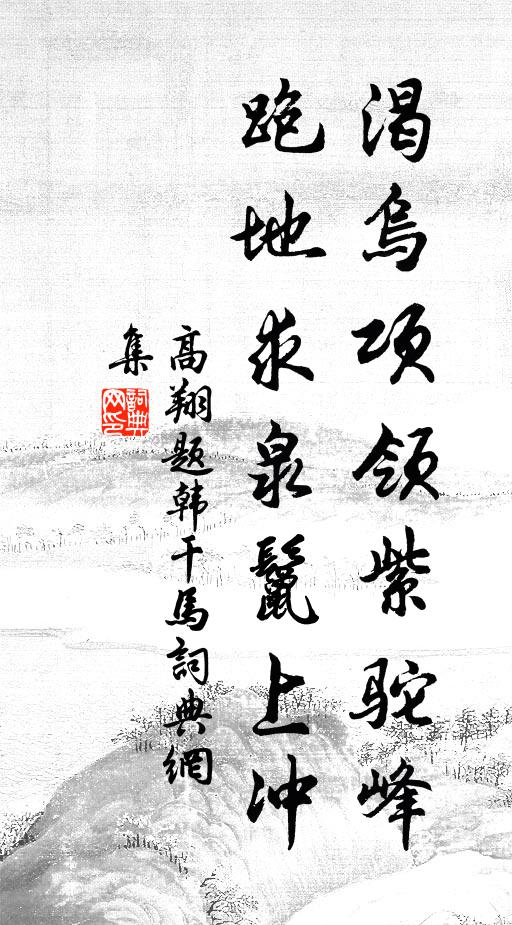 渴乌项领紫驼峰
跑地求泉鬣上冲
高翔题韩干马詞典網
集
詞典网印